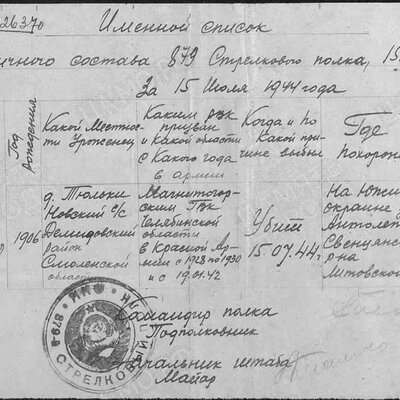 26370
Именной список
ичного состава 879 Стрелкового полка, 15
За 15 Июля 1944 года
Год рождения
Какой Местнос-
ти Уроженец
Каким РВК
призван
и Какой области
с Какого года
в армии
Когда и по
Какой при-
чине выбыл
Где
похорон
1906
д. Тюльки
Новский с/с
Демидовский
район
Смоленской
области
Магнитогор-
ским ГВК
Челябинской
области
в Красной Ар-
мии с 1928 по 1930
и с 19.01.42
Убит
15.07.44г.
На Южн
окраине
Антолеп
Свенцянс
р-на
Литовской
Командир полка
Подполковник
Начальник штаба
Майор
879-й
СТРЕЛКОВЫЙ